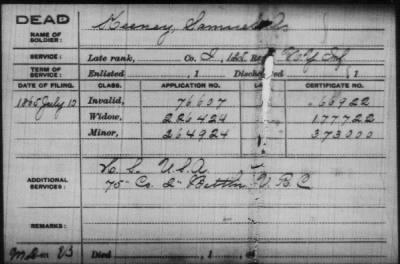 DEAD
NAME OF SOLDIER: Keeney, Samuel
SERVICE: Late rank, Co. I, 125 Reg
TERM OF SERVICE: Enlisted , 1 Discharged , 1
DATE OF FILING. CLASS. APPLICATION NO. CERTIFICATE NO.
1865 July 10 Invalid, 76607 66922
Widow, 226424 177722
Minor, 264924 373000
ADDITIONAL SERVICES: U.S.A.
75" Co. 2" Battln V. R. C
REMARKS:
Died , 1 , at